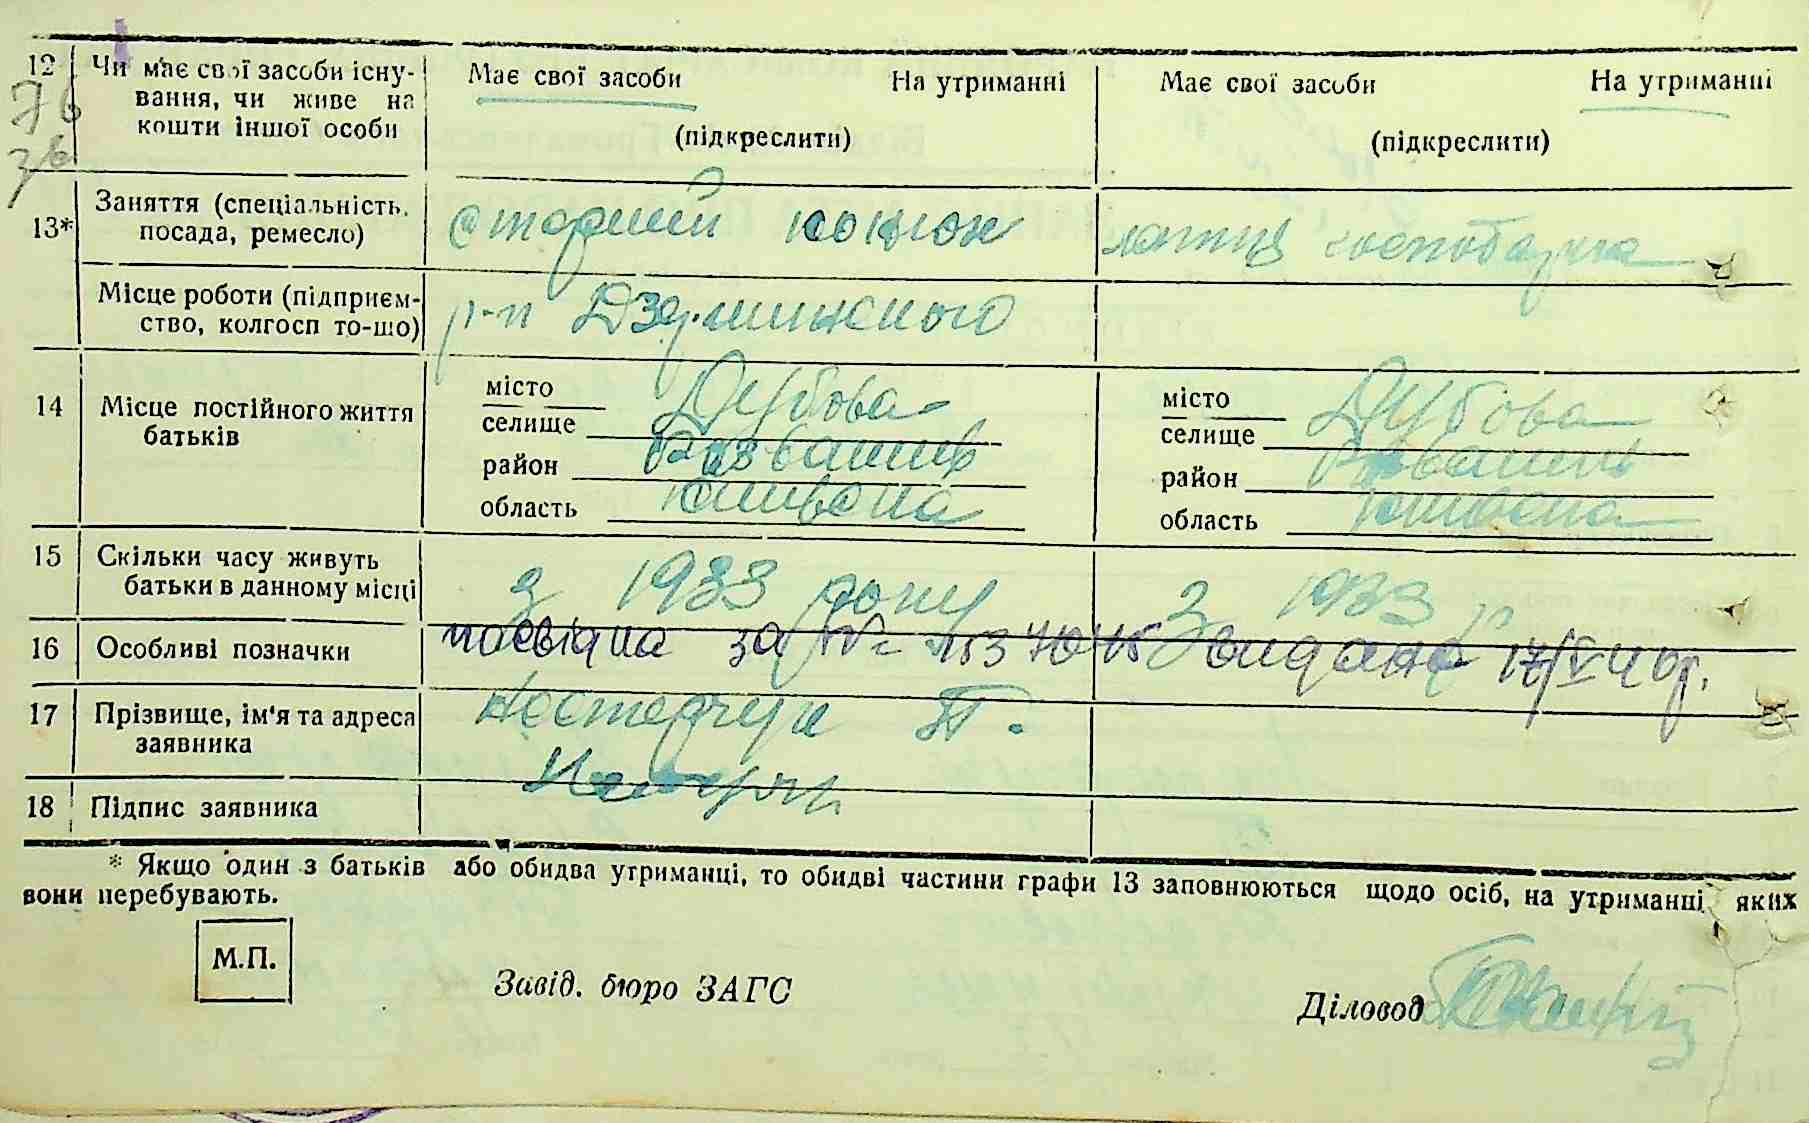 12 Чи має свої засоби існу- Має свої засоби На утриманні Має свої засоби На утриманні
76 вання, чи живе на
кошти іншої особи (підкреслити) (підкреслити)
13* Заняття (спеціальність, старший
посада, ремесло)
Місце роботи (підприєм- р-п Дзержинского
ство, колгосп то-що)
14 Місце постійного життя місто Дубова місто Дубова
батьків селище селище
район район
область область
15 Скільки часу живуть з 1933 року з 1933 р
батьки в данному місці
16 Особливі позначки за № видана 17/V 40р.
17 Прізвище, ім'я та адреса Нестерчук П.
заявника
18 Підпис заявника
* Якщо один з батьків або обидва утриманці, то обидві частини графи 13 заповнюються щодо осіб, на утриманці яких
вони перебувають.
М.П.
Завід. бюро ЗАГС Діловод